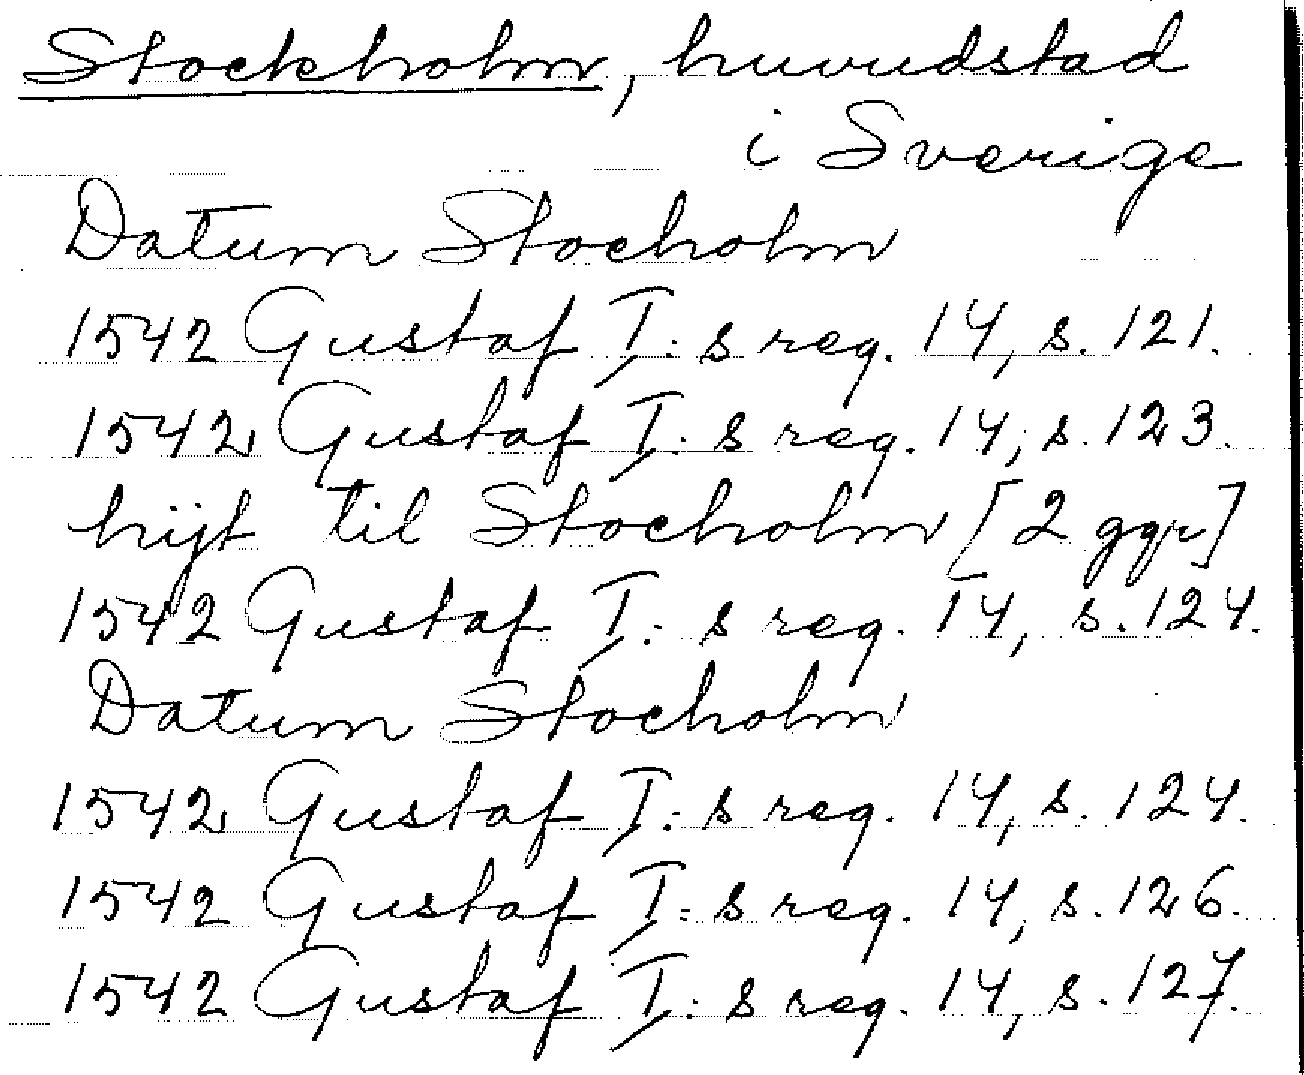 Stockholm, huvudstad
i Sverige
Datum Stocholm
1542 Gustaf I:s reg. 14, s. 121.
1542 Gustaf I:s reg. 14, s. 123.
hijt til Stocholm [2 ggr]
1542 Gustaf I:s reg. 14, s. 124.
Datum Stocholm
1542 Gustaf I:s reg. 14, s. 124.
1542 Gustaf I:s reg. 14, s. 126.
1542 Gustaf I:s reg. 14, s. 127.